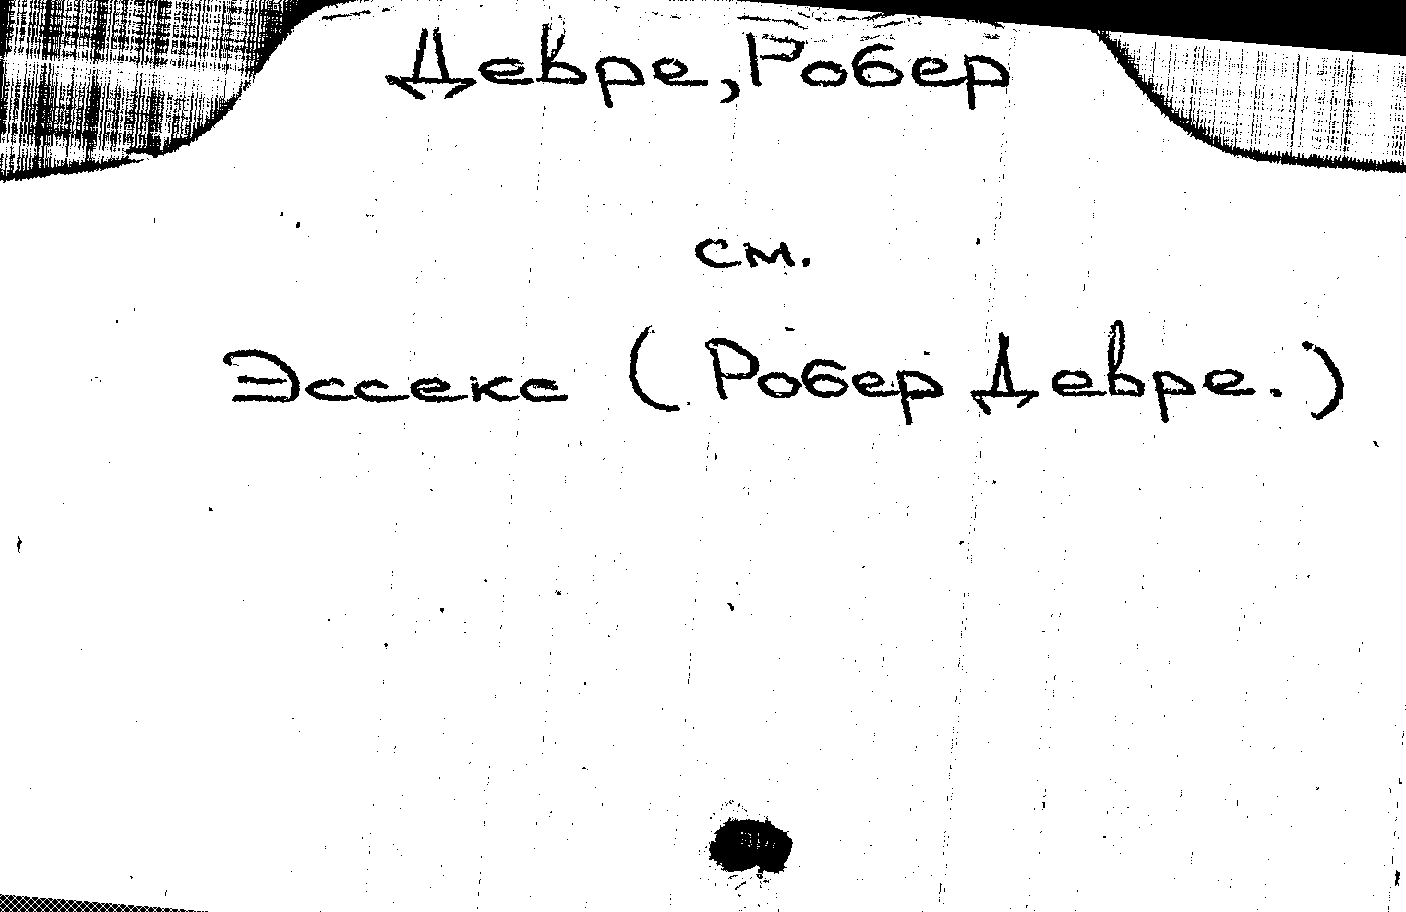 Девре, Робер
см.
Эссекс (Робер Девре.)